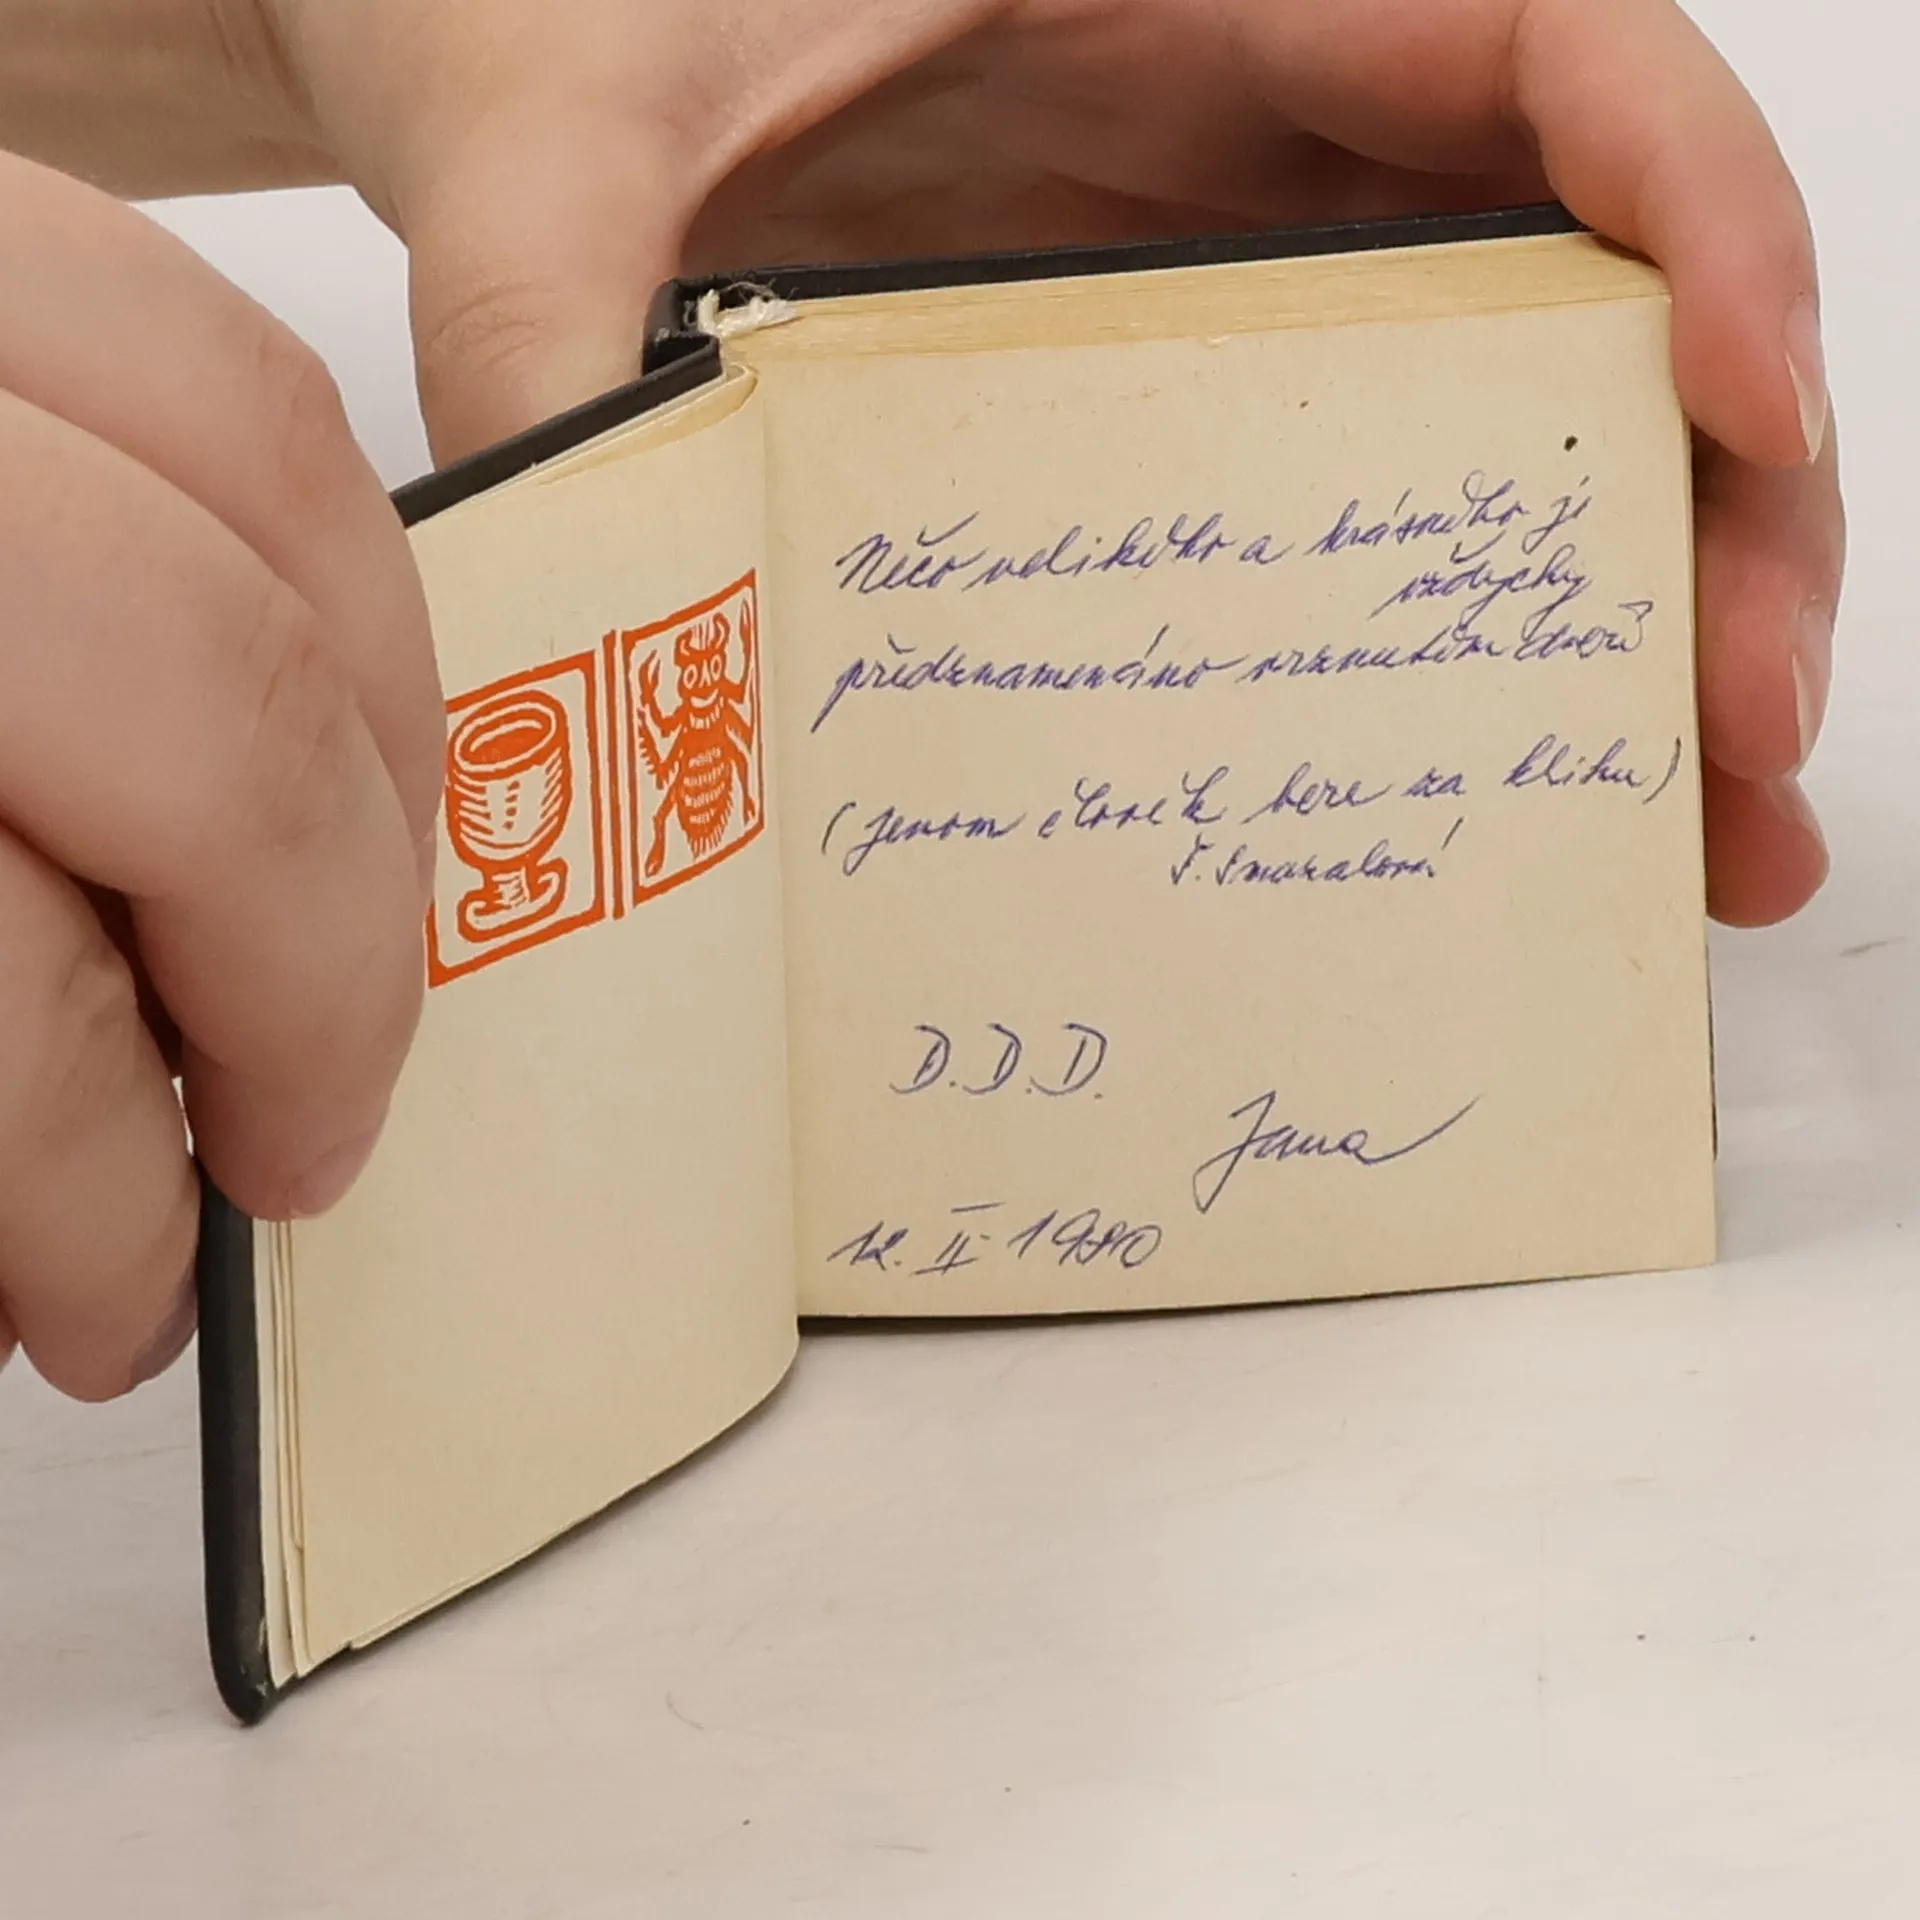 Něco velikého a krásného je
vždycky
předznamenáno vrznutím dveří
(jenom člověk bere za kliku)
Š. Smazalová
D.D.D.
Jana
12. II 1980